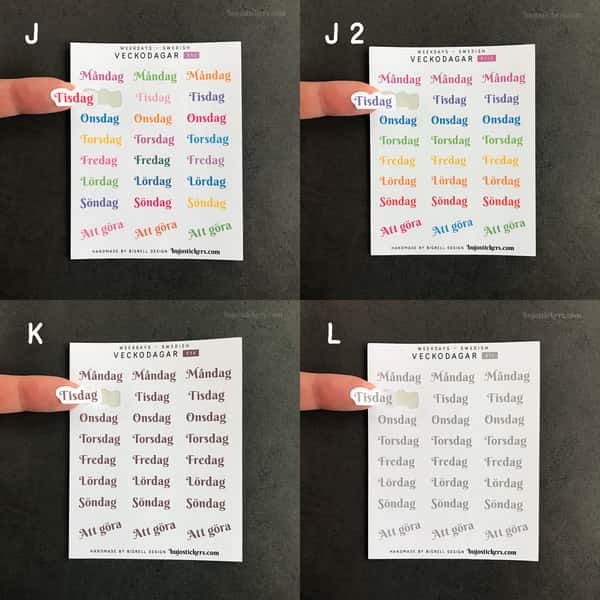 J
bujostickers.com
WEEKDAYS - SWEDISH
VECKODAGAR
Måndag Måndag Måndag
Tisdag Tisdag Tisdag
Onsdag Onsdag Onsdag
Torsdag Torsdag Torsdag
Fredag Fredag Fredag
Lördag Lördag Lördag
Söndag Söndag Söndag
Att göra Att göra Att göra
HANDMADE BY BIGRELL DESIGN bujostickers.com
J 2
bujostickers.com
WEEKDAYS - SWEDISH
VECKODAGAR
Måndag Måndag Måndag
Tisdag Tisdag Tisdag
Onsdag Onsdag Onsdag
Torsdag Torsdag Torsdag
Fredag Fredag Fredag
Lördag Lördag Lördag
Söndag Söndag Söndag
Att göra Att göra Att göra
HANDMADE BY BIGRELL DESIGN bujostickers.com
K
bujostickers.com
WEEKDAYS - SWEDISH
VECKODAGAR
Måndag Måndag Måndag
Tisdag Tisdag Tisdag
Onsdag Onsdag Onsdag
Torsdag Torsdag Torsdag
Fredag Fredag Fredag
Lördag Lördag Lördag
Söndag Söndag Söndag
Att göra Att göra Att göra
HANDMADE BY BIGRELL DESIGN bujostickers.com
L
bujostickers.com
WEEKDAYS - SWEDISH
VECKODAGAR
Måndag Måndag Måndag
Tisdag Tisdag Tisdag
Onsdag Onsdag Onsdag
Torsdag Torsdag Torsdag
Fredag Fredag Fredag
Lördag Lördag Lördag
Söndag Söndag Söndag
Att göra Att göra Att göra
HANDMADE BY BIGRELL DESIGN bujostickers.com